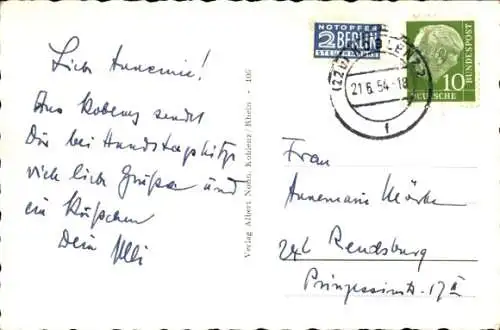 Lieb Annemie!
Aus Koblenz sendet
Dir bei Hundstagshitze
viele liebe Grüße und
ein Küßchen
Dein
Verlag Albert Nohn, Koblenz/Rhein - 106
NOTOPFER
2 BERLIN
STEUERMARKE
21.6.54-18
f
10
DEUTSCHE
BUNDESPOST
Frau
Annemarie
24b Rendsburg
Prinzessinstr. 17 II